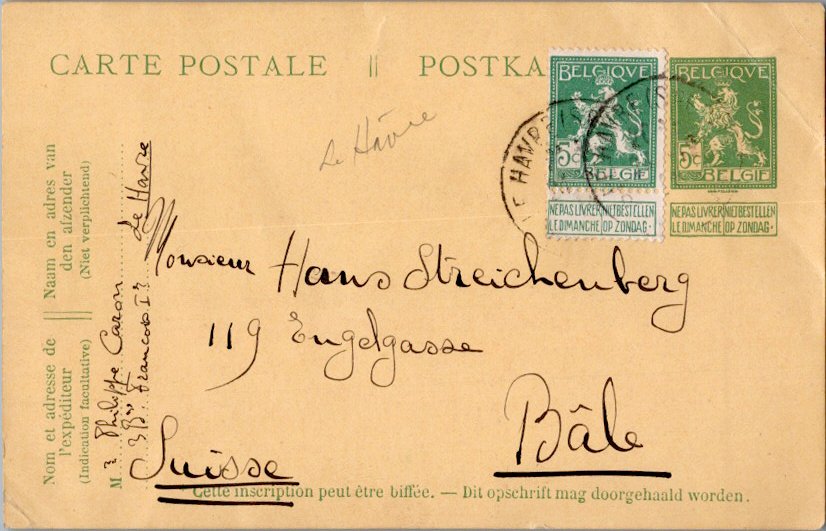 CARTE POSTALE || POSTKA
BELGIQVE
5c
BELGIË
NE PAS LIVRER NIET BESTELLEN
LE DIMANCHE OP ZONDAG.
BELGIQVE
5c
BELGIË
NE PAS LIVRER NIET BESTELLEN
LE DIMANCHE OP ZONDAG.
LE HAVRE
HAVRE
Le Hâvre
Naam en adres van
den afzender
(Niet verplichtend)
Nom et adresse de
l'expéditeur
(Indication facultative)
M
Philippe Caron
3 Bd François Ier
Le Havre
Monsieur Hans Streichenberg
119 Engelgasse
Bâle
Suisse
* Cette inscription peut être biffée. — Dit opschrift mag doorgehaald worden.